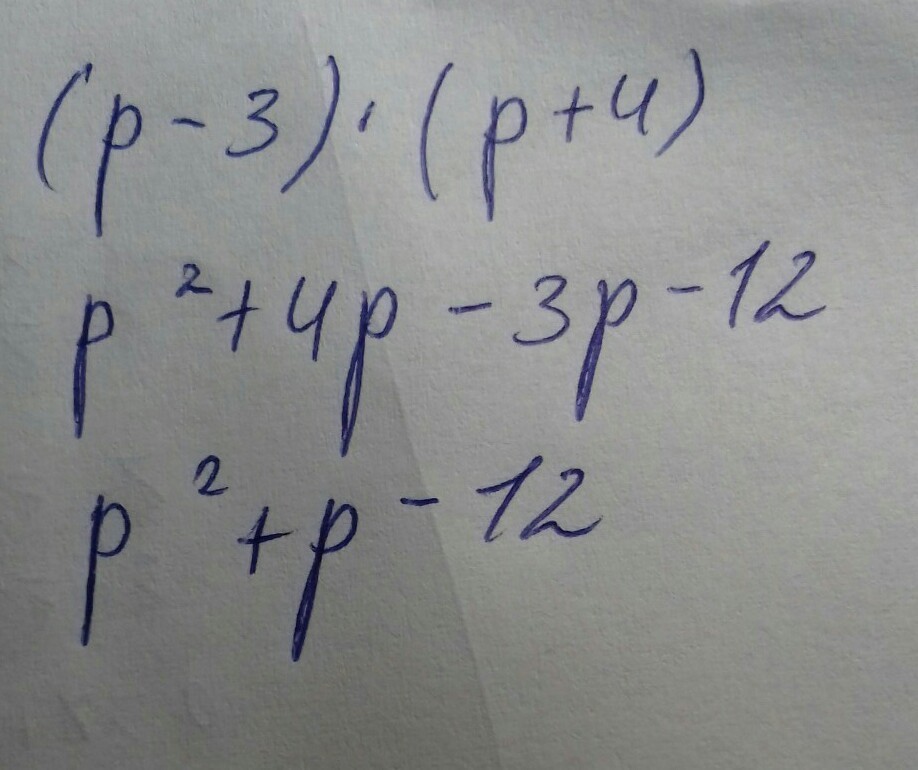 (p - 3) · (p + 4)
p² + 4p - 3p - 12
p² + p - 12